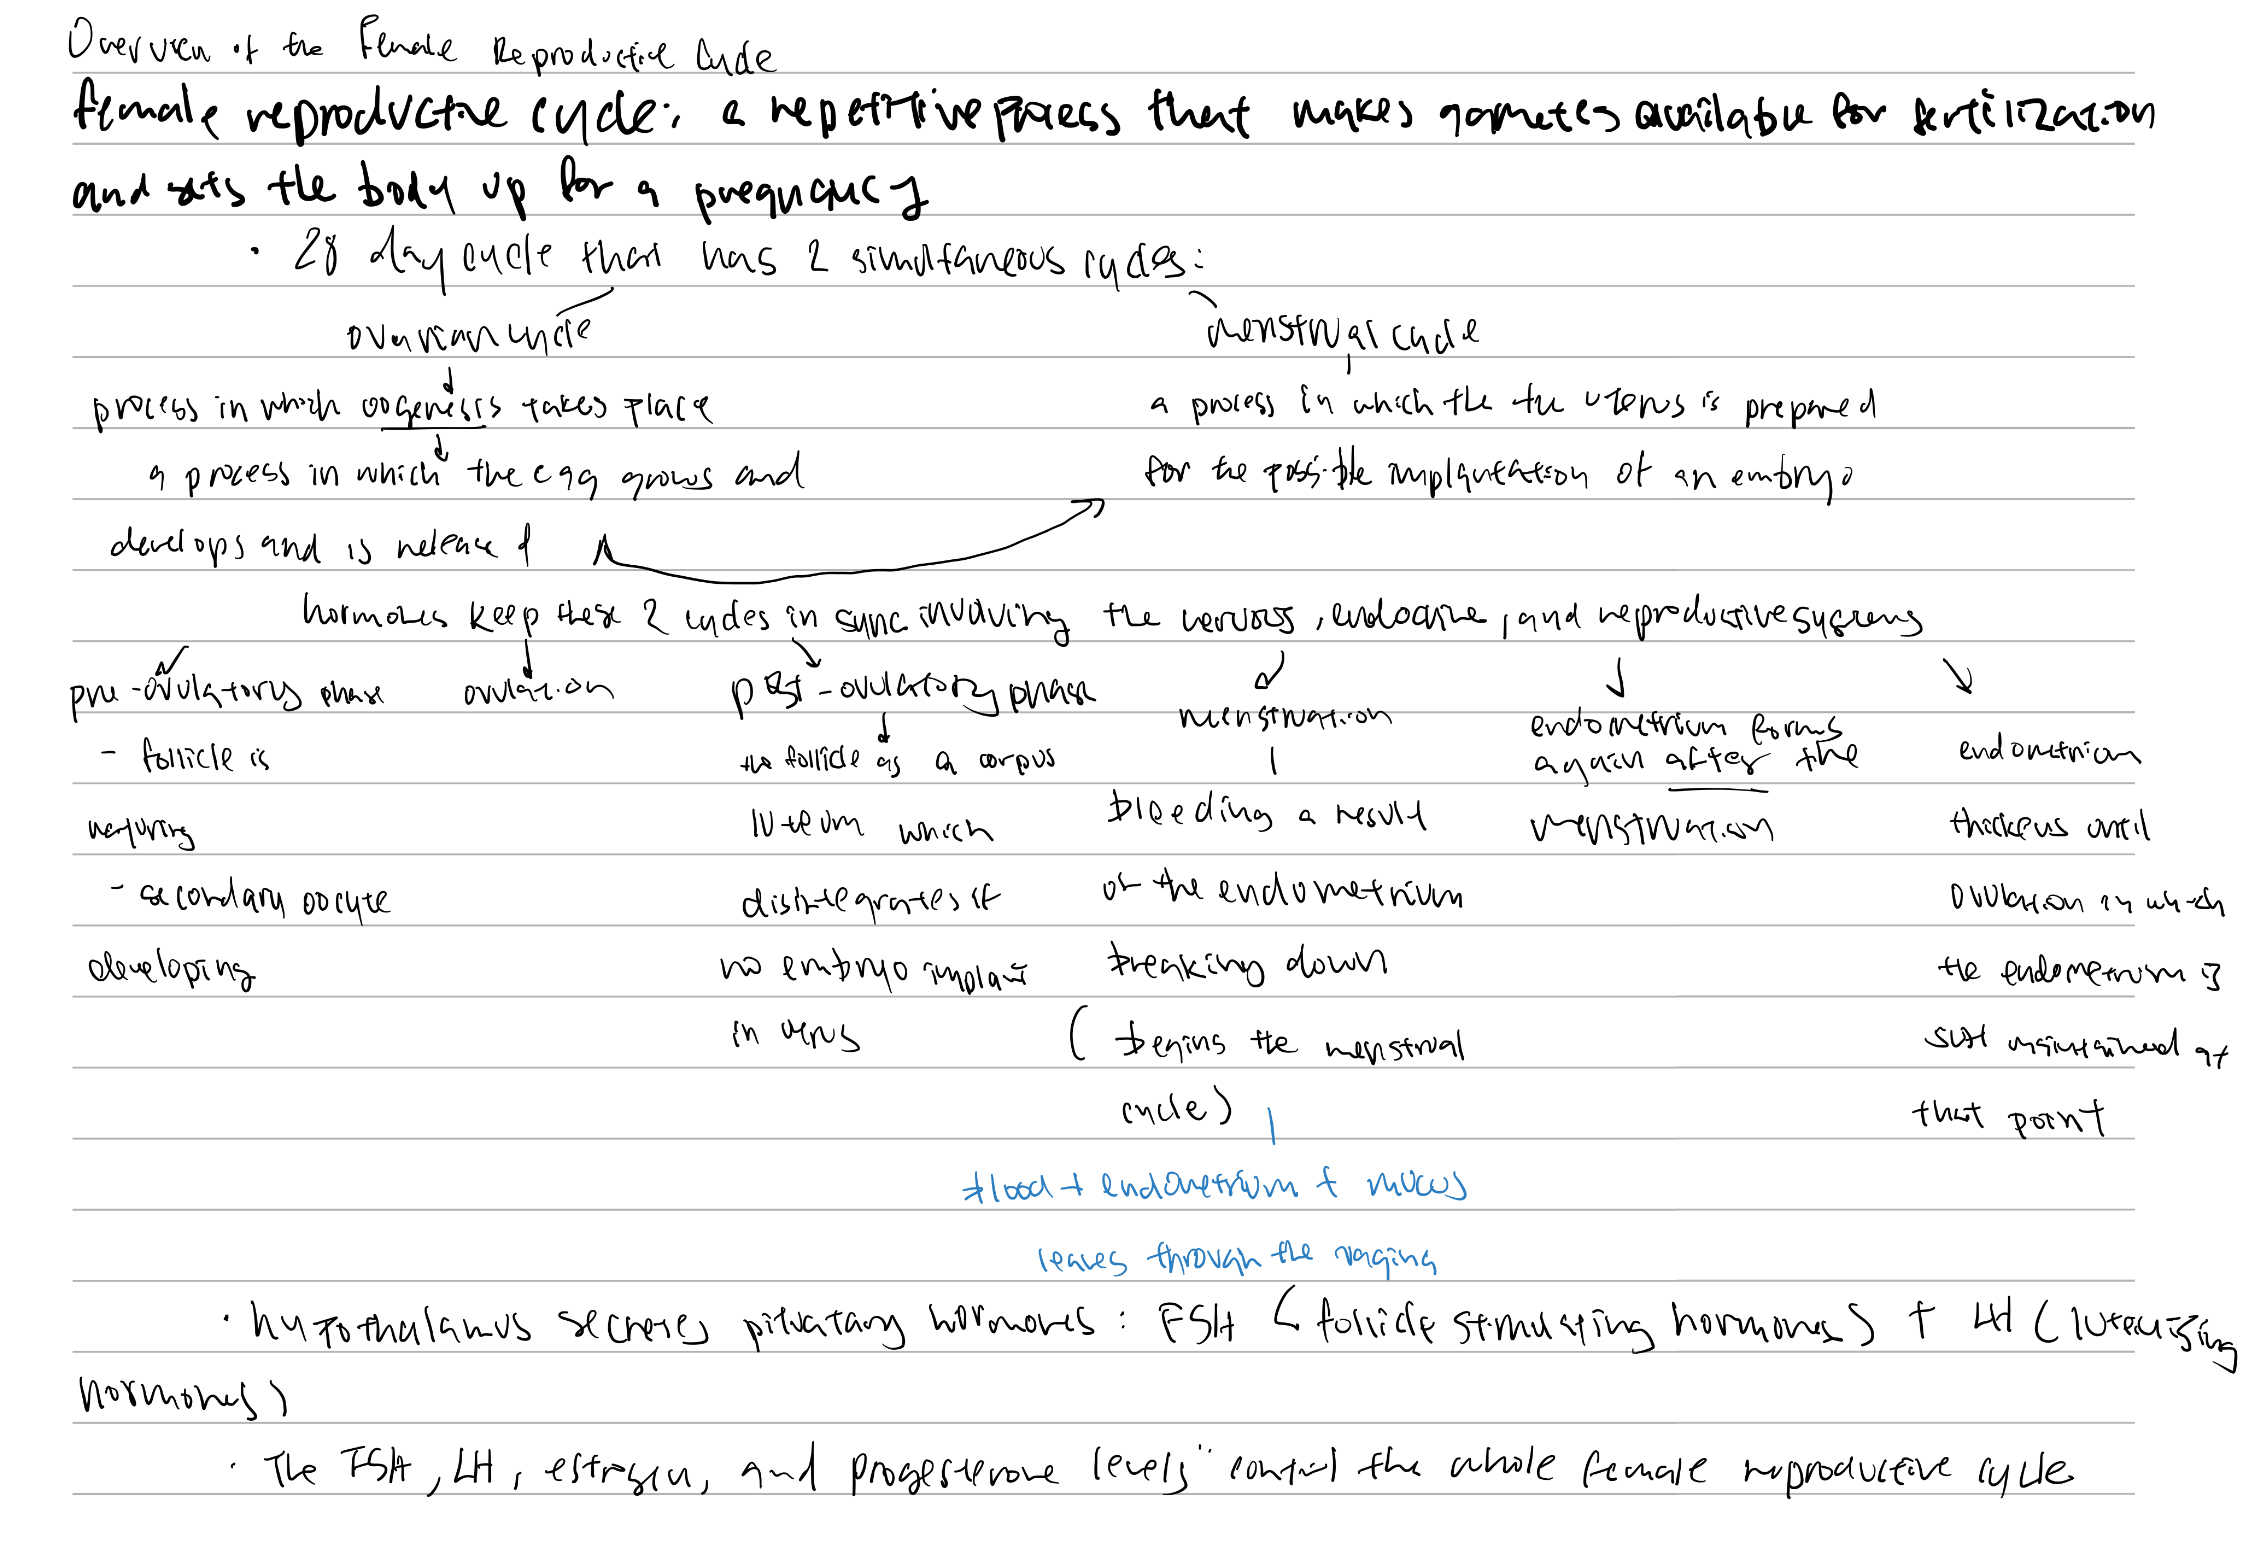 Overview of the Female Reproductive Cycle
female reproductive cycle: a repetitive process that makes gametes available for fertilization
and sets the body up for a pregnancy
• 28 day cycle that has 2 simultaneous cycles:
ovarian cycle
menstrual cycle
process in which oogenesis takes place
a process in which the egg grows and
develops and is released
a process in which the the uterus is prepared
for the possible implantation of an embryo
hormones keep these 2 cycles in sync involving the nervous, endocrine, and reproductive systems
pre-ovulatory phase
- follicle is
maturing
- secondary oocyte
developing
ovulation
post-ovulatory phase
the follicle as a corpus
luteum which
disintegrates if
no embryo implant
in uterus
menstruation
bleeding a result
of the endometrium
breaking down
(begins the menstrual
cycle)
blood + endometrium + mucus
leaves through the vagina
endometrium forms
again after the
menstruation
endometrium
thickens until
ovulation in which
the endometrium is
still maintained at
that point
• hypothalamus secretes pituitary hormones: FSH (follicle stimulating hormones) + LH (luteinizing
hormones)
• The FSH, LH, estrogen, and progesterone levels control the whole female reproductive cycle